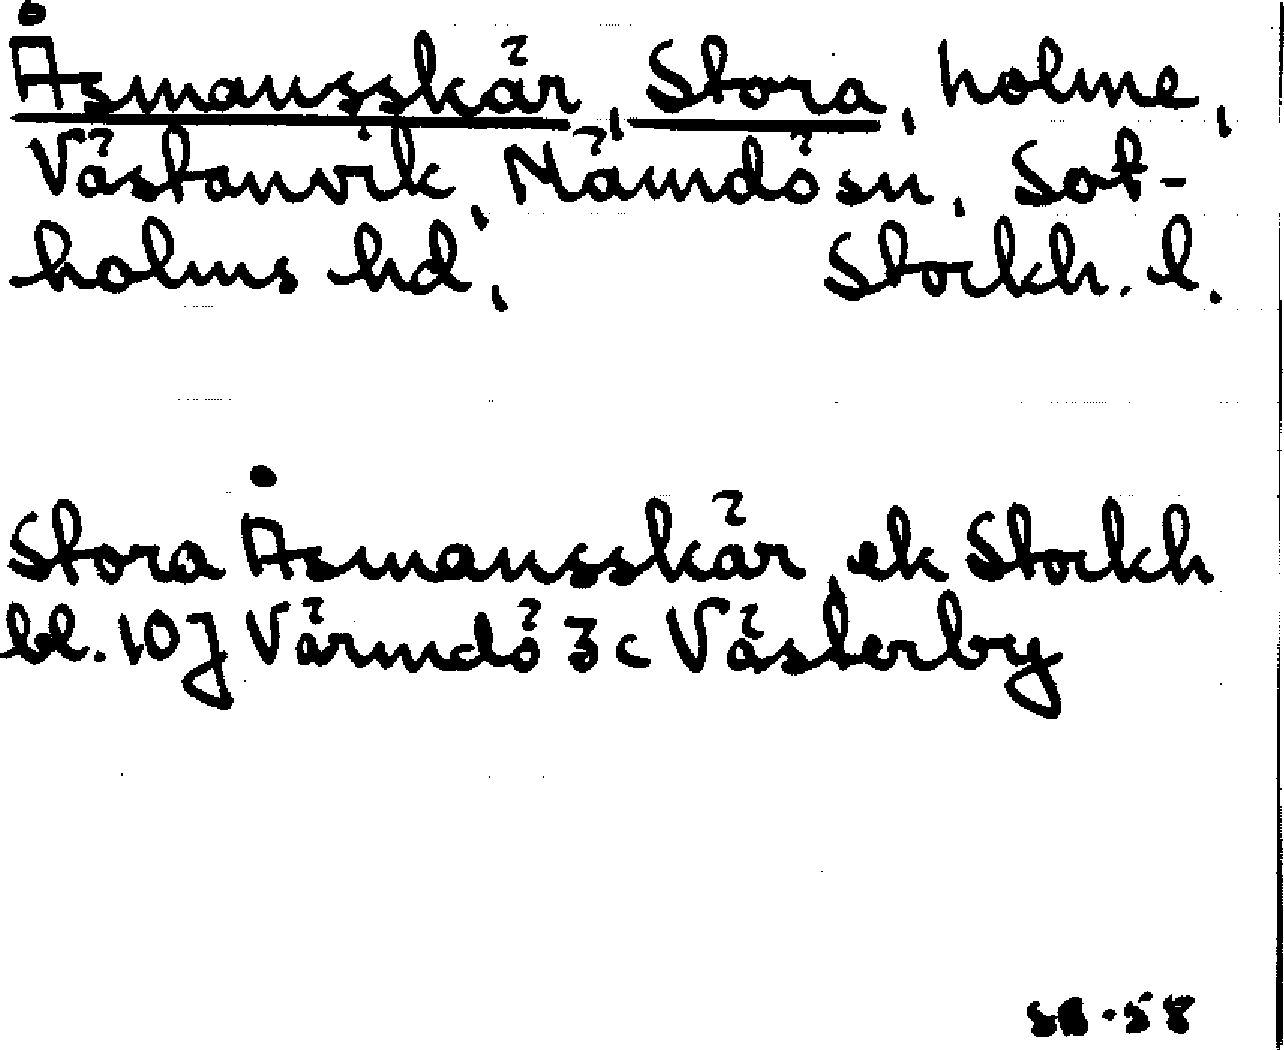 Åsmansskär, Stora, holme,
Västanvik, Nämdö sn, Sot-
holms hd, Stockh. l.
Stora Åsmansskär, ek Stockh
bl. 10J Värmdö 3c Västerby
SB-58